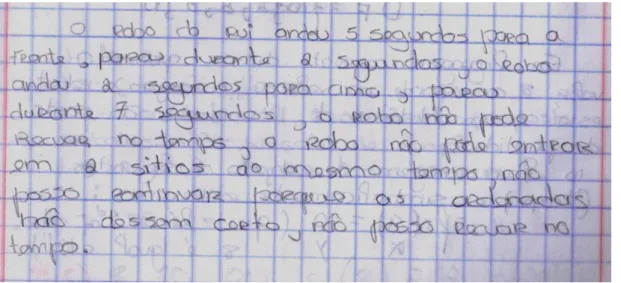 O robo do rui andou 5 segundos para a
frente, parou durante 2 segundos, o robo
andou 2 segundos para cima, parou
durante 7 seguindos, o robo não pode
Recuar no tempo, o robo não pode entrar
em 2 sitios ao mesmo tempo não
posso continuar porque as cordnadas
não dessem certo, não posso recuar no
tempo.